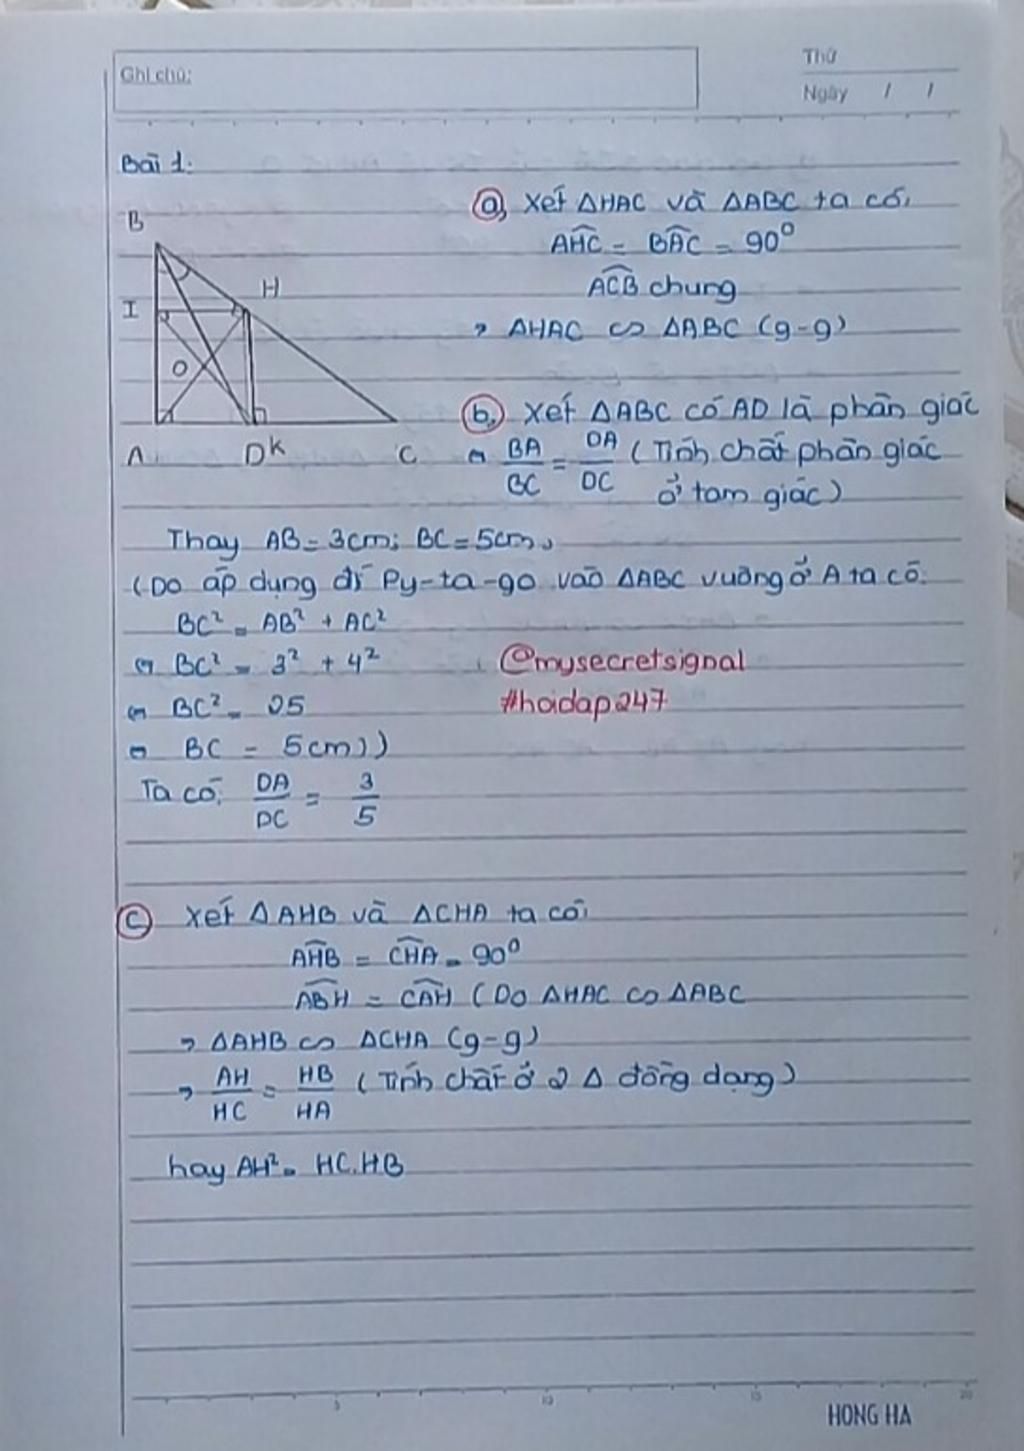 Ghi chú:
Thứ
Ngày / /
Bài 1:
B
H
I
O
A D K C
a, Xét ΔHAC và ΔABC ta có:
AHC = BAC = 90°
ACB chung
→ ΔHAC ∽ ΔABC (g-g)
b, Xét ΔABC có AD là phân giác
⇔ BA/BC = DA/DC (Tính chất phân giác
ở tam giác)
Thay AB = 3cm; BC = 5cm,
(Do áp dụng đl Py-ta-go vào ΔABC vuông ở A ta có:
BC² = AB² + AC²
⇔ BC² = 3² + 4²
⇔ BC² = 25
⇔ BC = 5cm))
@mysecretsignal
#hoidap247
Ta có: DA/DC = 3/5
c Xét ΔAHB và ΔCHA ta có:
AHB = CHA = 90°
ABH = CAH (Do ΔHAC ∽ ΔABC
→ ΔAHB ∽ ΔCHA (g-g)
→ AH/HC = HB/HA (Tính chất ở 2 Δ đồng dạng)
hay AH² = HC.HB
5 10 15 20
HONG HA